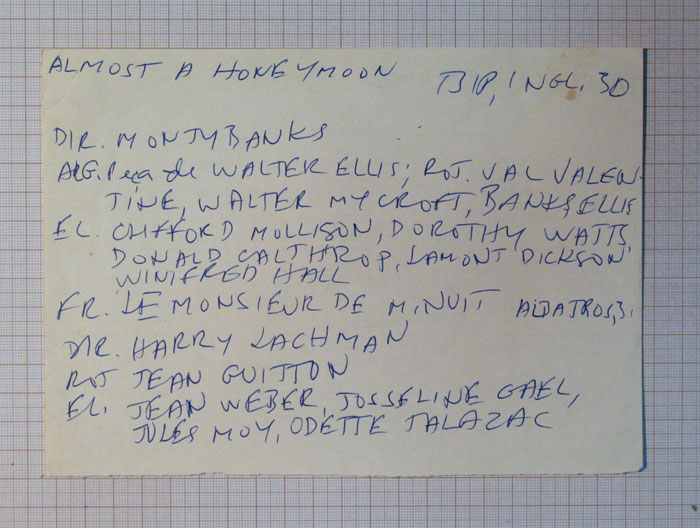 ALMOST A HONEYMOON BIP, INGL. 30
DIR. MONTY BANKS
ARG. Peça de WALTER ELLIS; ROT. VAL VALEN-
TINE, WALTER MYCROFT, BANKS, ELLIS
EL. CLIFFORD MOLLISON, DOROTHY WATTS,
DONALD CALTHROP, LAMONT DICKSON,
WINIFRED HALL
FR. LE MONSIEUR DE MINUIT ALBATROS, 31
DIR. HARRY LACHMAN
ROT JEAN GUITTON
EL. JEAN WEBER, JOSSELINE GAEL,
JULES MOY, ODETTE TALAZAC